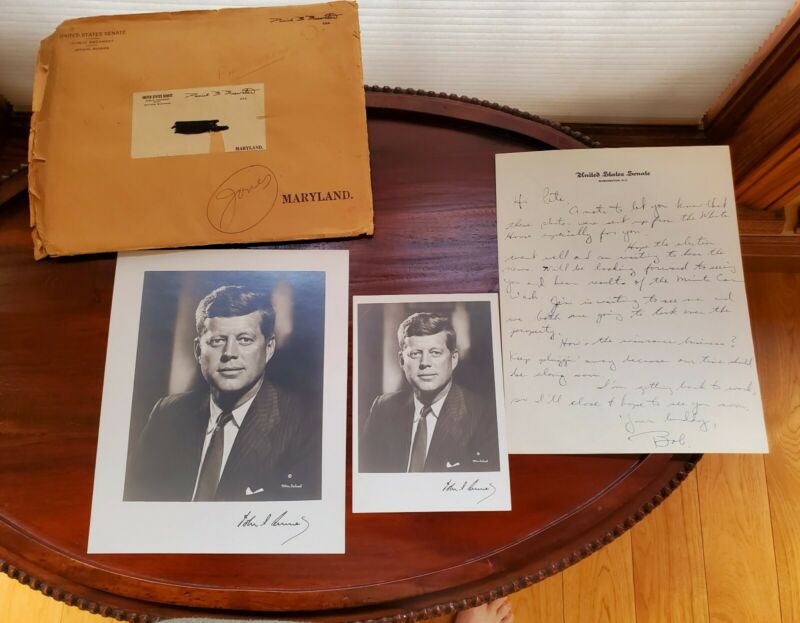 UNITED STATES SENATE
PUBLIC DOCUMENT
OFFICIAL BUSINESS
Daniel B. Brewster
U.S.S.
UNITED STATES SENATE
PUBLIC DOCUMENT
OFFICIAL BUSINESS
Daniel B. Brewster
U.S.S.
MARYLAND.
Jones
MARYLAND.
John F. Kennedy
John F. Kennedy
United States Senate
WASHINGTON, D.C.
Hi Pete,
A note to let you know that
these photos were sent up from the White
House especially for you.
Hope the election
went well and am waiting to hear the
news. Will be looking forward to seeing
you and hear results of the Minute Car
Wash. Jim is waiting to see me and
we both are going to look over the
property.
How's the insurance business?
Keep pluggin' away because our time shall
be along soon.
I'm getting back to work,
so I'll close & hope to see you soon.
Yours
Bob